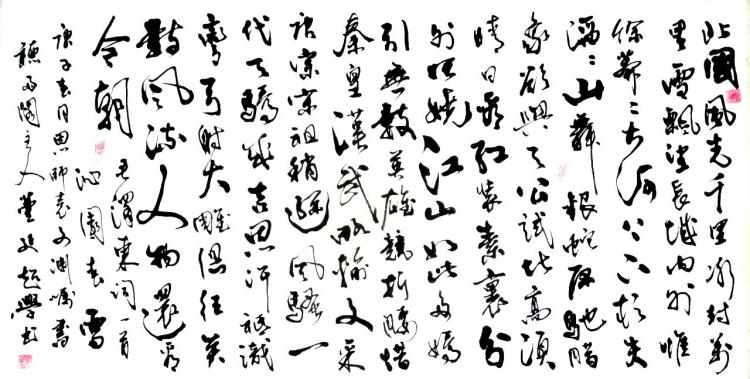 北國風光千里冰封萬
里雪飄望長城內外惟
餘莽〻大河上下頓失
滔〻山舞銀蛇原馳蠟
象欲與天公試比高須
晴日看紅裝素裹分
外妖嬈江山如此多嬌
引無數英雄競折腰惜
秦皇漢武略輸文采
唐宗宋祖稍遜風騷一
代天驕成吉思汗祗識
彎弓射大雕俱往矣
數風流人物還看
今朝
毛澤東詞一首
沁園春雪
庚子春月恩師袁文淵囑書
聽雨閣主人董延超學書